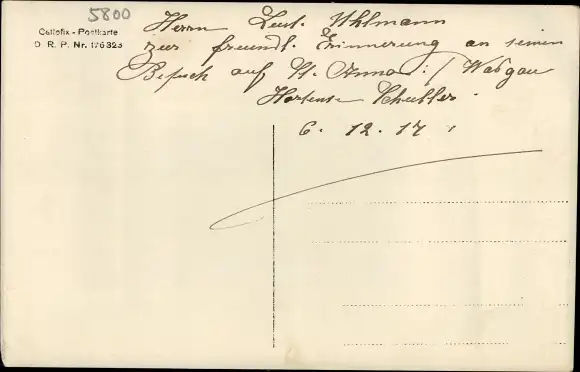 5800
Cellofix - Postkarte
D. R. P. Nr. 176323
Herrn Leut. Uhlmann
zur freundl. Erinnerung an seinen
Besuch auf St. Anna / Wasgau
Hortense Schuller
6. 12. 17.